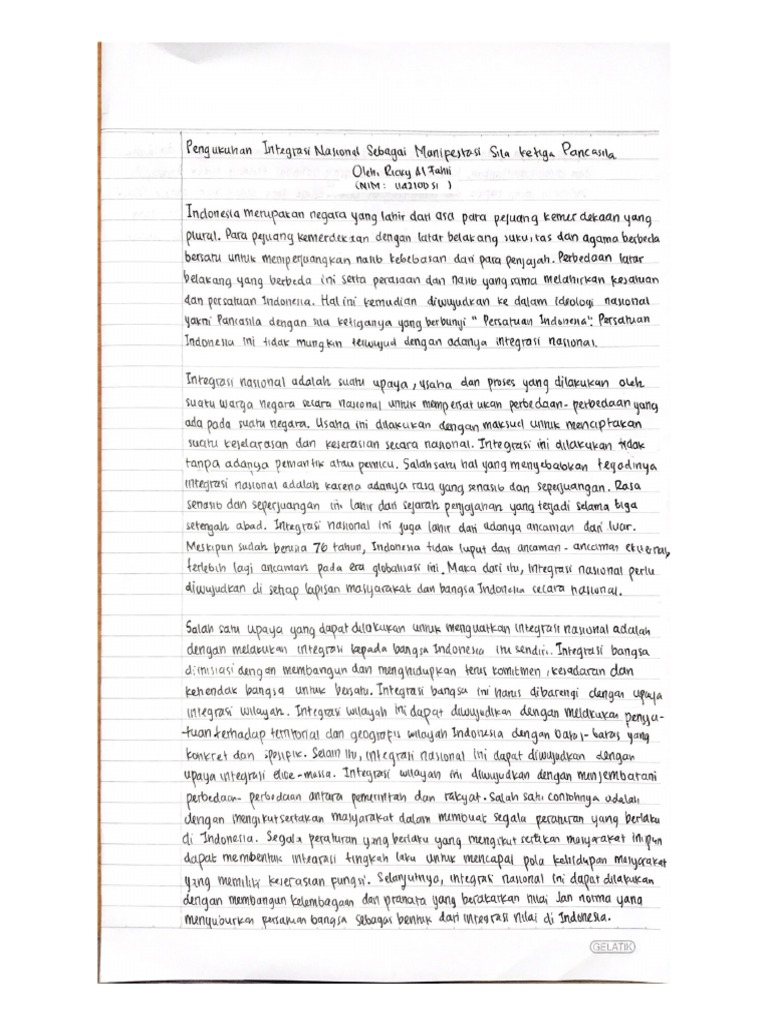 Pengukuhan Integrasi Nasional Sebagai Manifestasi Sila ketiga Pancasila
Oleh: Ricky Al Fahri
(NIM:
Indonesia merupakan negara yang lahir dari asa para pejuang kemerdekaan yang
plural. Para pejuang kemerdekaan dengan latar belakang suku, ras dan agama berbeda
bersatu untuk memperjuangkan nasib kebebasan dari para penjajah. Perbedaan latar
belakang yang berbeda ini serta perasaan dan nasib yang sama melahirkan kesatuan
dan persatuan Indonesia. Hal ini kemudian diwujudkan ke dalam ideologi nasional
yakni Pancasila dengan sila ketiganya yang berbunyi "Persatuan Indonesia". Persatuan
Indonesia ini tidak mungkin terwujud dengan adanya integrasi nasional.
Integrasi nasional adalah suatu upaya, usaha dan proses yang dilakukan oleh
suatu warga negara secara nasional untuk mempersatukan perbedaan-perbedaan yang
ada pada suatu negara. Usaha ini dilakukan dengan maksud untuk menciptakan
suatu keselarasan dan keserasian secara nasional. Integrasi ini dilakukan tidak
tanpa adanya pemantik atau pemicu. Salah satu hal yang menyebabkan terjadinya
integrasi nasional adalah karena adanya rasa yang senasib dan seperjuangan. Rasa
senasib dan seperjuangan ini lahir dari sejarah penjajahan yang terjadi selama tiga
setengah abad. Integrasi nasional ini juga lahir dari adanya ancaman dari luar.
Meskipun sudah berusia 76 tahun, Indonesia tidak luput dari ancaman-ancaman eksternal,
terlebih lagi ancaman pada era globalisasi ini. Maka dari itu, integrasi nasional perlu
diwujudkan di setiap lapisan masyarakat dan bangsa Indonesia secara nasional.
Salah satu upaya yang dapat dilakukan untuk menguatkan integrasi nasional adalah
dengan melakukan integrasi kepada bangsa Indonesia itu sendiri. Integrasi bangsa
diinisiasi dengan membangun dan menghidupkan terus komitmen, kesadaran dan
kehendak bangsa untuk bersatu. Integrasi bangsa ini harus dibarengi dengan upaya
integrasi wilayah. Integrasi wilayah ini dapat diwujudkan dengan melakukan penya-
-tuan terhadap territorial dan geografis wilayah Indonesia dengan batas-batas yang
konkret dan spesifik. Selain itu, integrasi nasional ini dapat diwujudkan dengan
upaya integrasi elite-massa. Integrasi wilayah ini diwujudkan dengan menjembatani
perbedaan-perbedaan antara pemerintah dan rakyat. Salah satu contohnya adalah
dengan mengikutsertakan masyarakat dalam membuat segala peraturan yang berlaku
di Indonesia. Segala peraturan yang berlaku yang mengikut sertakan masyarakat inipun
dapat membentuk integrasi tingkah laku untuk mencapai pola kehidupan masyarakat
yang memiliki keserasian fungsi. Selanjutnya, integrasi nasional ini dapat dilakukan
dengan membangun kelembagaan dan pranata yang berakarkan nilai dan norma yang
menyuburkan persatuan bangsa sebagai bentuk dari integrasi nilai di Indonesia.
GELATIK